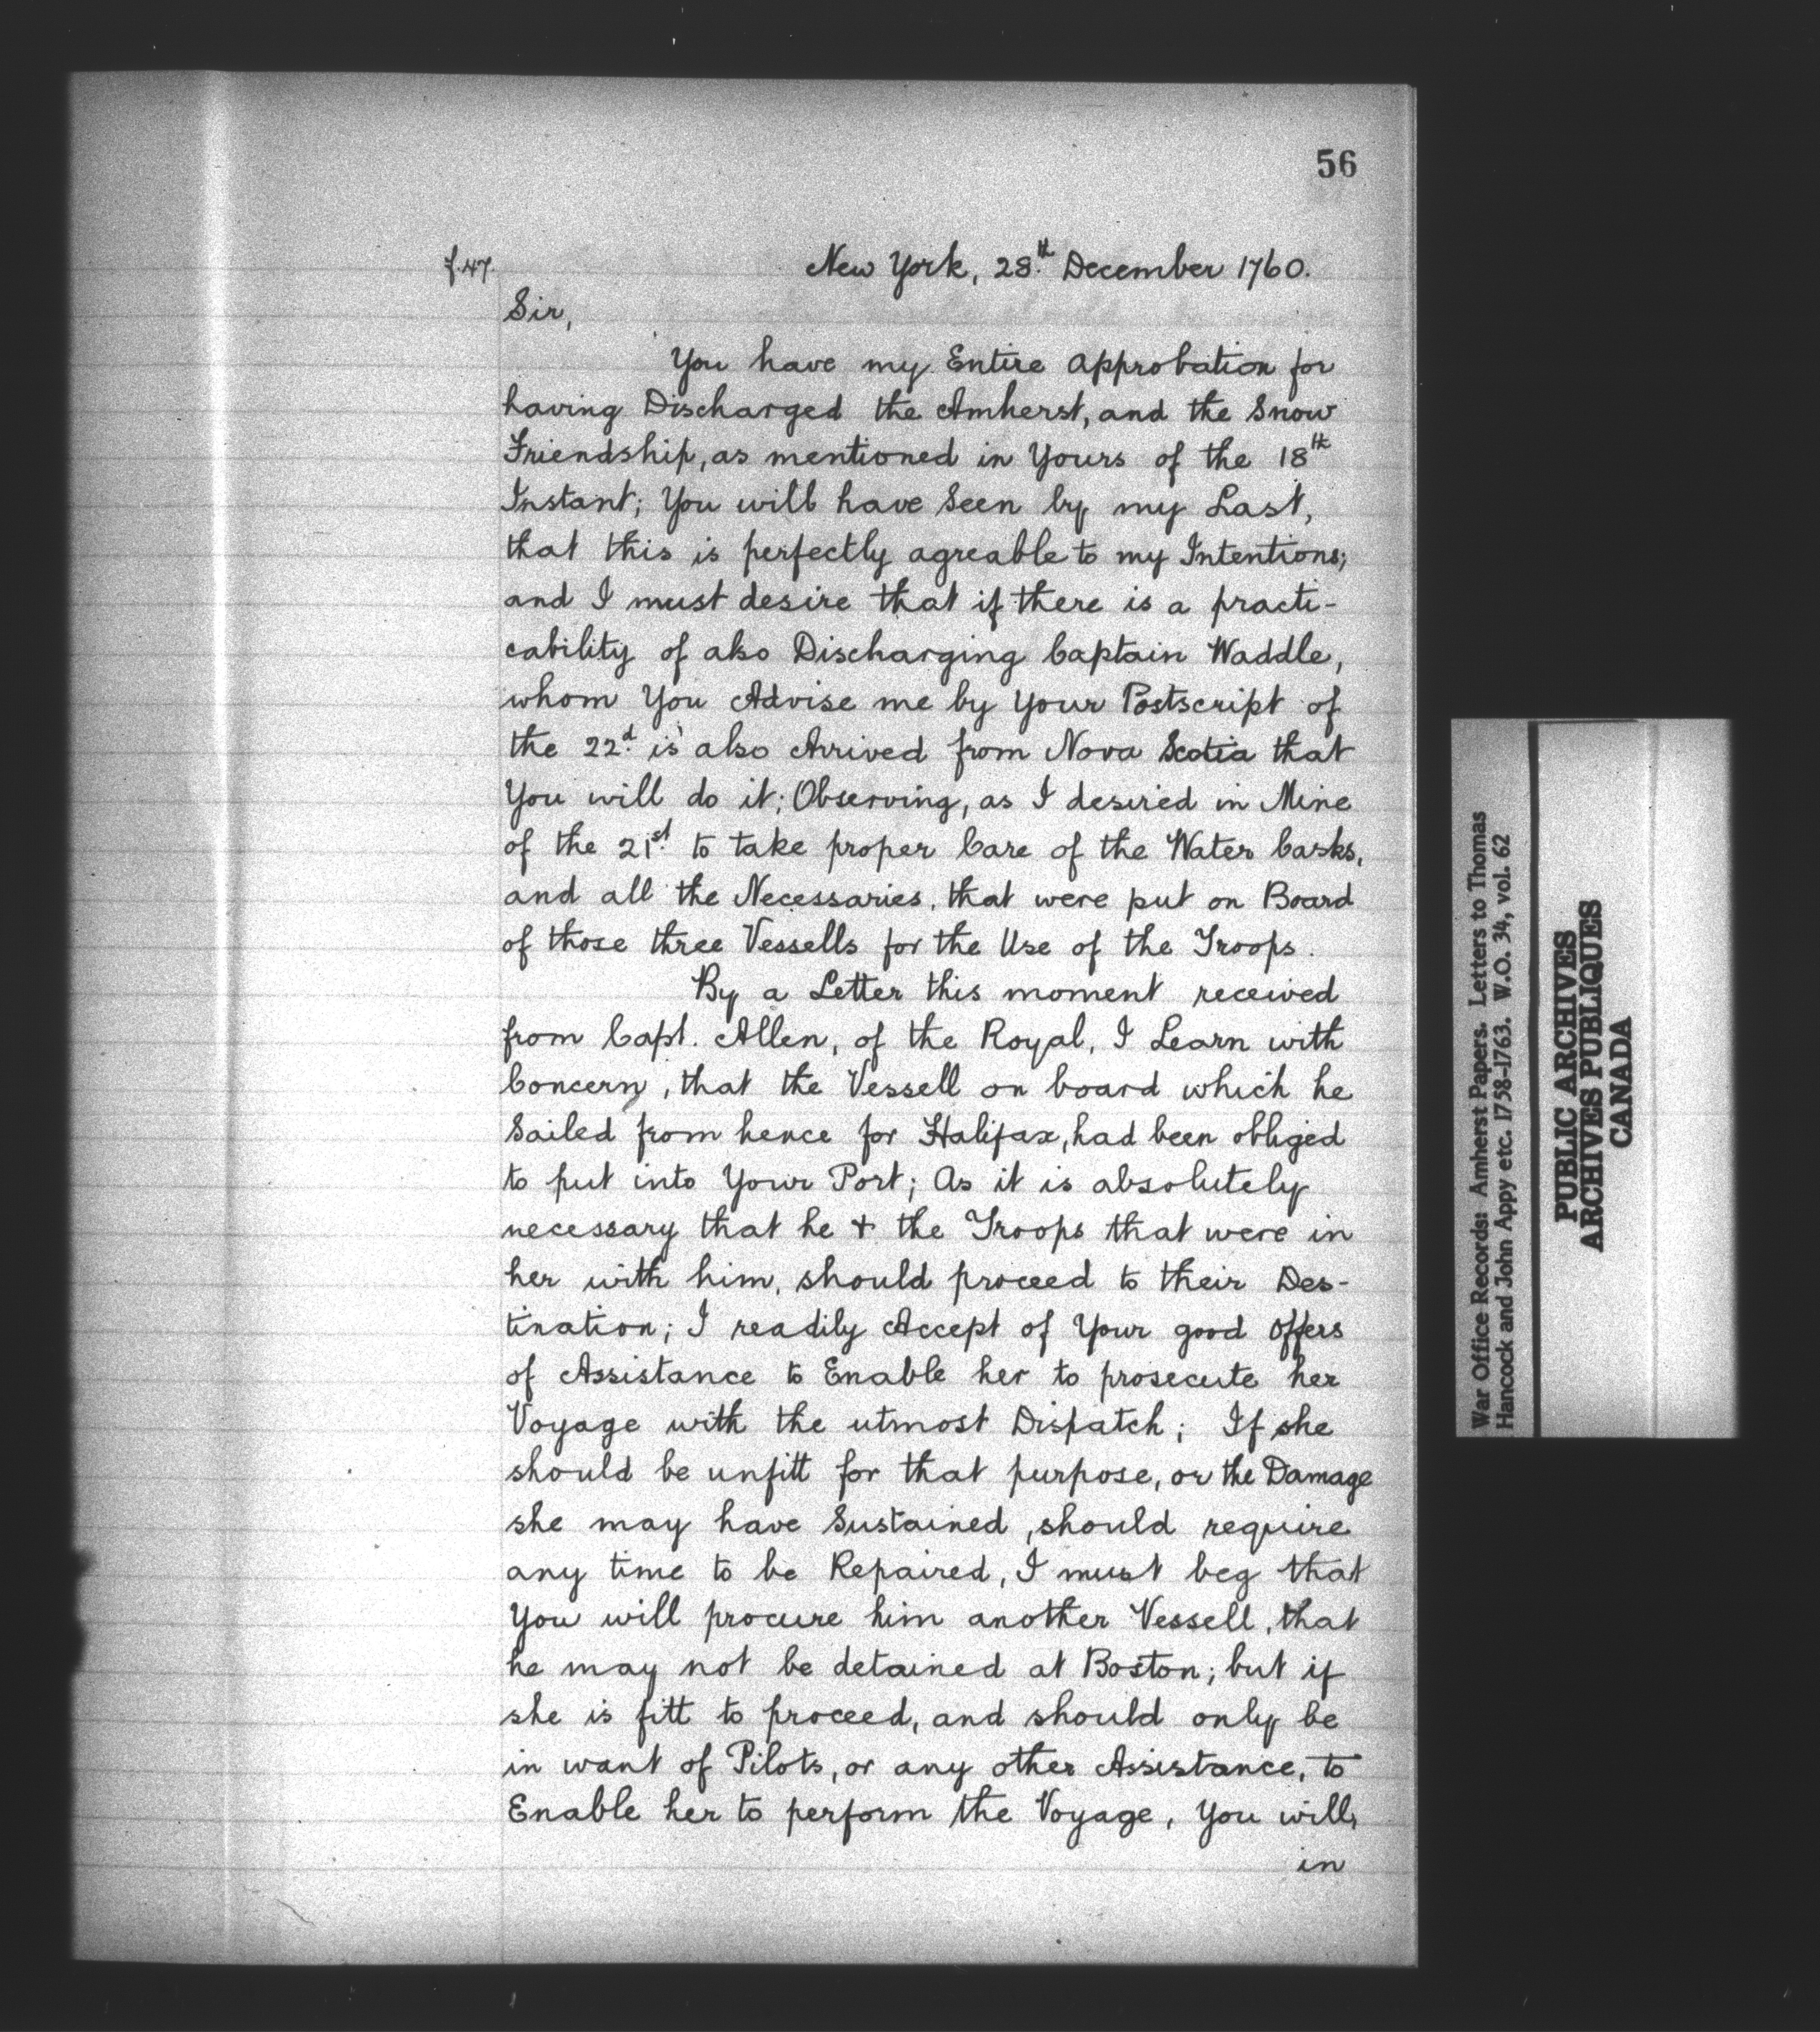 56
f.47.
New York, 28th December 1760.
Sir,
You have my Entire approbation for
having Discharged the Amherst, and the Snow
Friendship, as mentioned in Yours of the 18th
Instant; You will have Seen by my Last,
that this is perfectly agreable to my Intentions;
and I must desire that if there is a practi-
cability of also Discharging Captain Waddle,
whom You Advise me by Your Postscript of
the 22d. is also Arrived from Nova Scotia that
You will do it; Observing, as I desired in Mine
of the 21st. to take proper Care of the Water Casks,
and all the Necessaries, that were put on Board
of those three Vessells for the Use of the Troops.
By a Letter this moment received
from Capt. Allen, of the Royal, I Learn with
Concern, that the Vessell on board which he
Sailed from hence for Halifax, had been obliged
to put into Your Port; As it is absolutely
necessary that he & the Troops that were in
her with him, should proceed to their Des-
tination; I readily Accept of Your good Offers
of Assistance to Enable her to prosecute her
Voyage with the utmost Dispatch; If she
should be unfitt for that purpose, or the Damage
she may have Sustained, should require
any time to be Repaired, I must beg that
You will procure him another Vessell, that
he may not be detained at Boston; but if
she is fitt to proceed, and should only be
in want of Pilots, or any other Assistance, to
Enable her to perform the Voyage, You will,
in
War Office Records: Amherst Papers. Letters to Thomas
Hancock and John Appy etc. 1758-1763. W.O. 34, vol. 62
PUBLIC ARCHIVES
ARCHIVES PUBLIQUES
CANADA